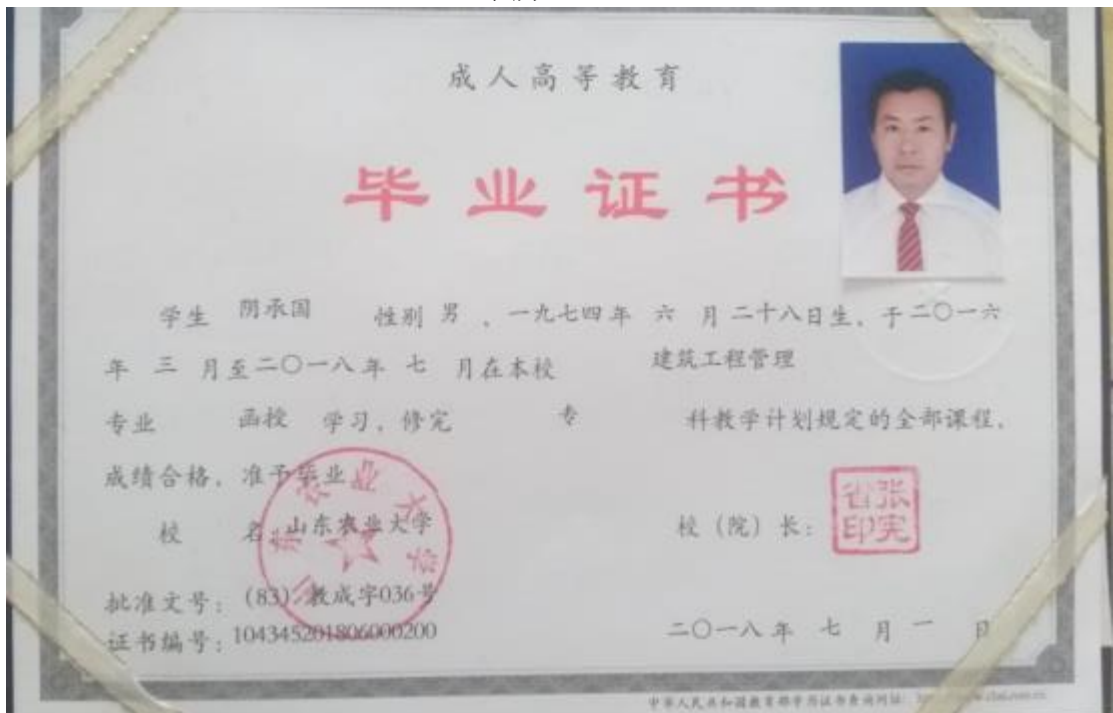 成人高等教育
毕业证书
学生 阴承国 性别 男 ，一九七四年 六 月 二十八日生，于二〇一六
年 三 月至二〇一八年 七 月在本校 建筑工程管理
专业 函授 学习，修完 专 科教学计划规定的全部课程，
成绩合格，准予毕业
校 名：山东农业大学 校（院）长：
张宪省印
批准文号：(83)教成字036号
证书编号：104345201806000200 二〇一八年 七 月 一 日
中华人民共和国教育部学历证书查询网址：